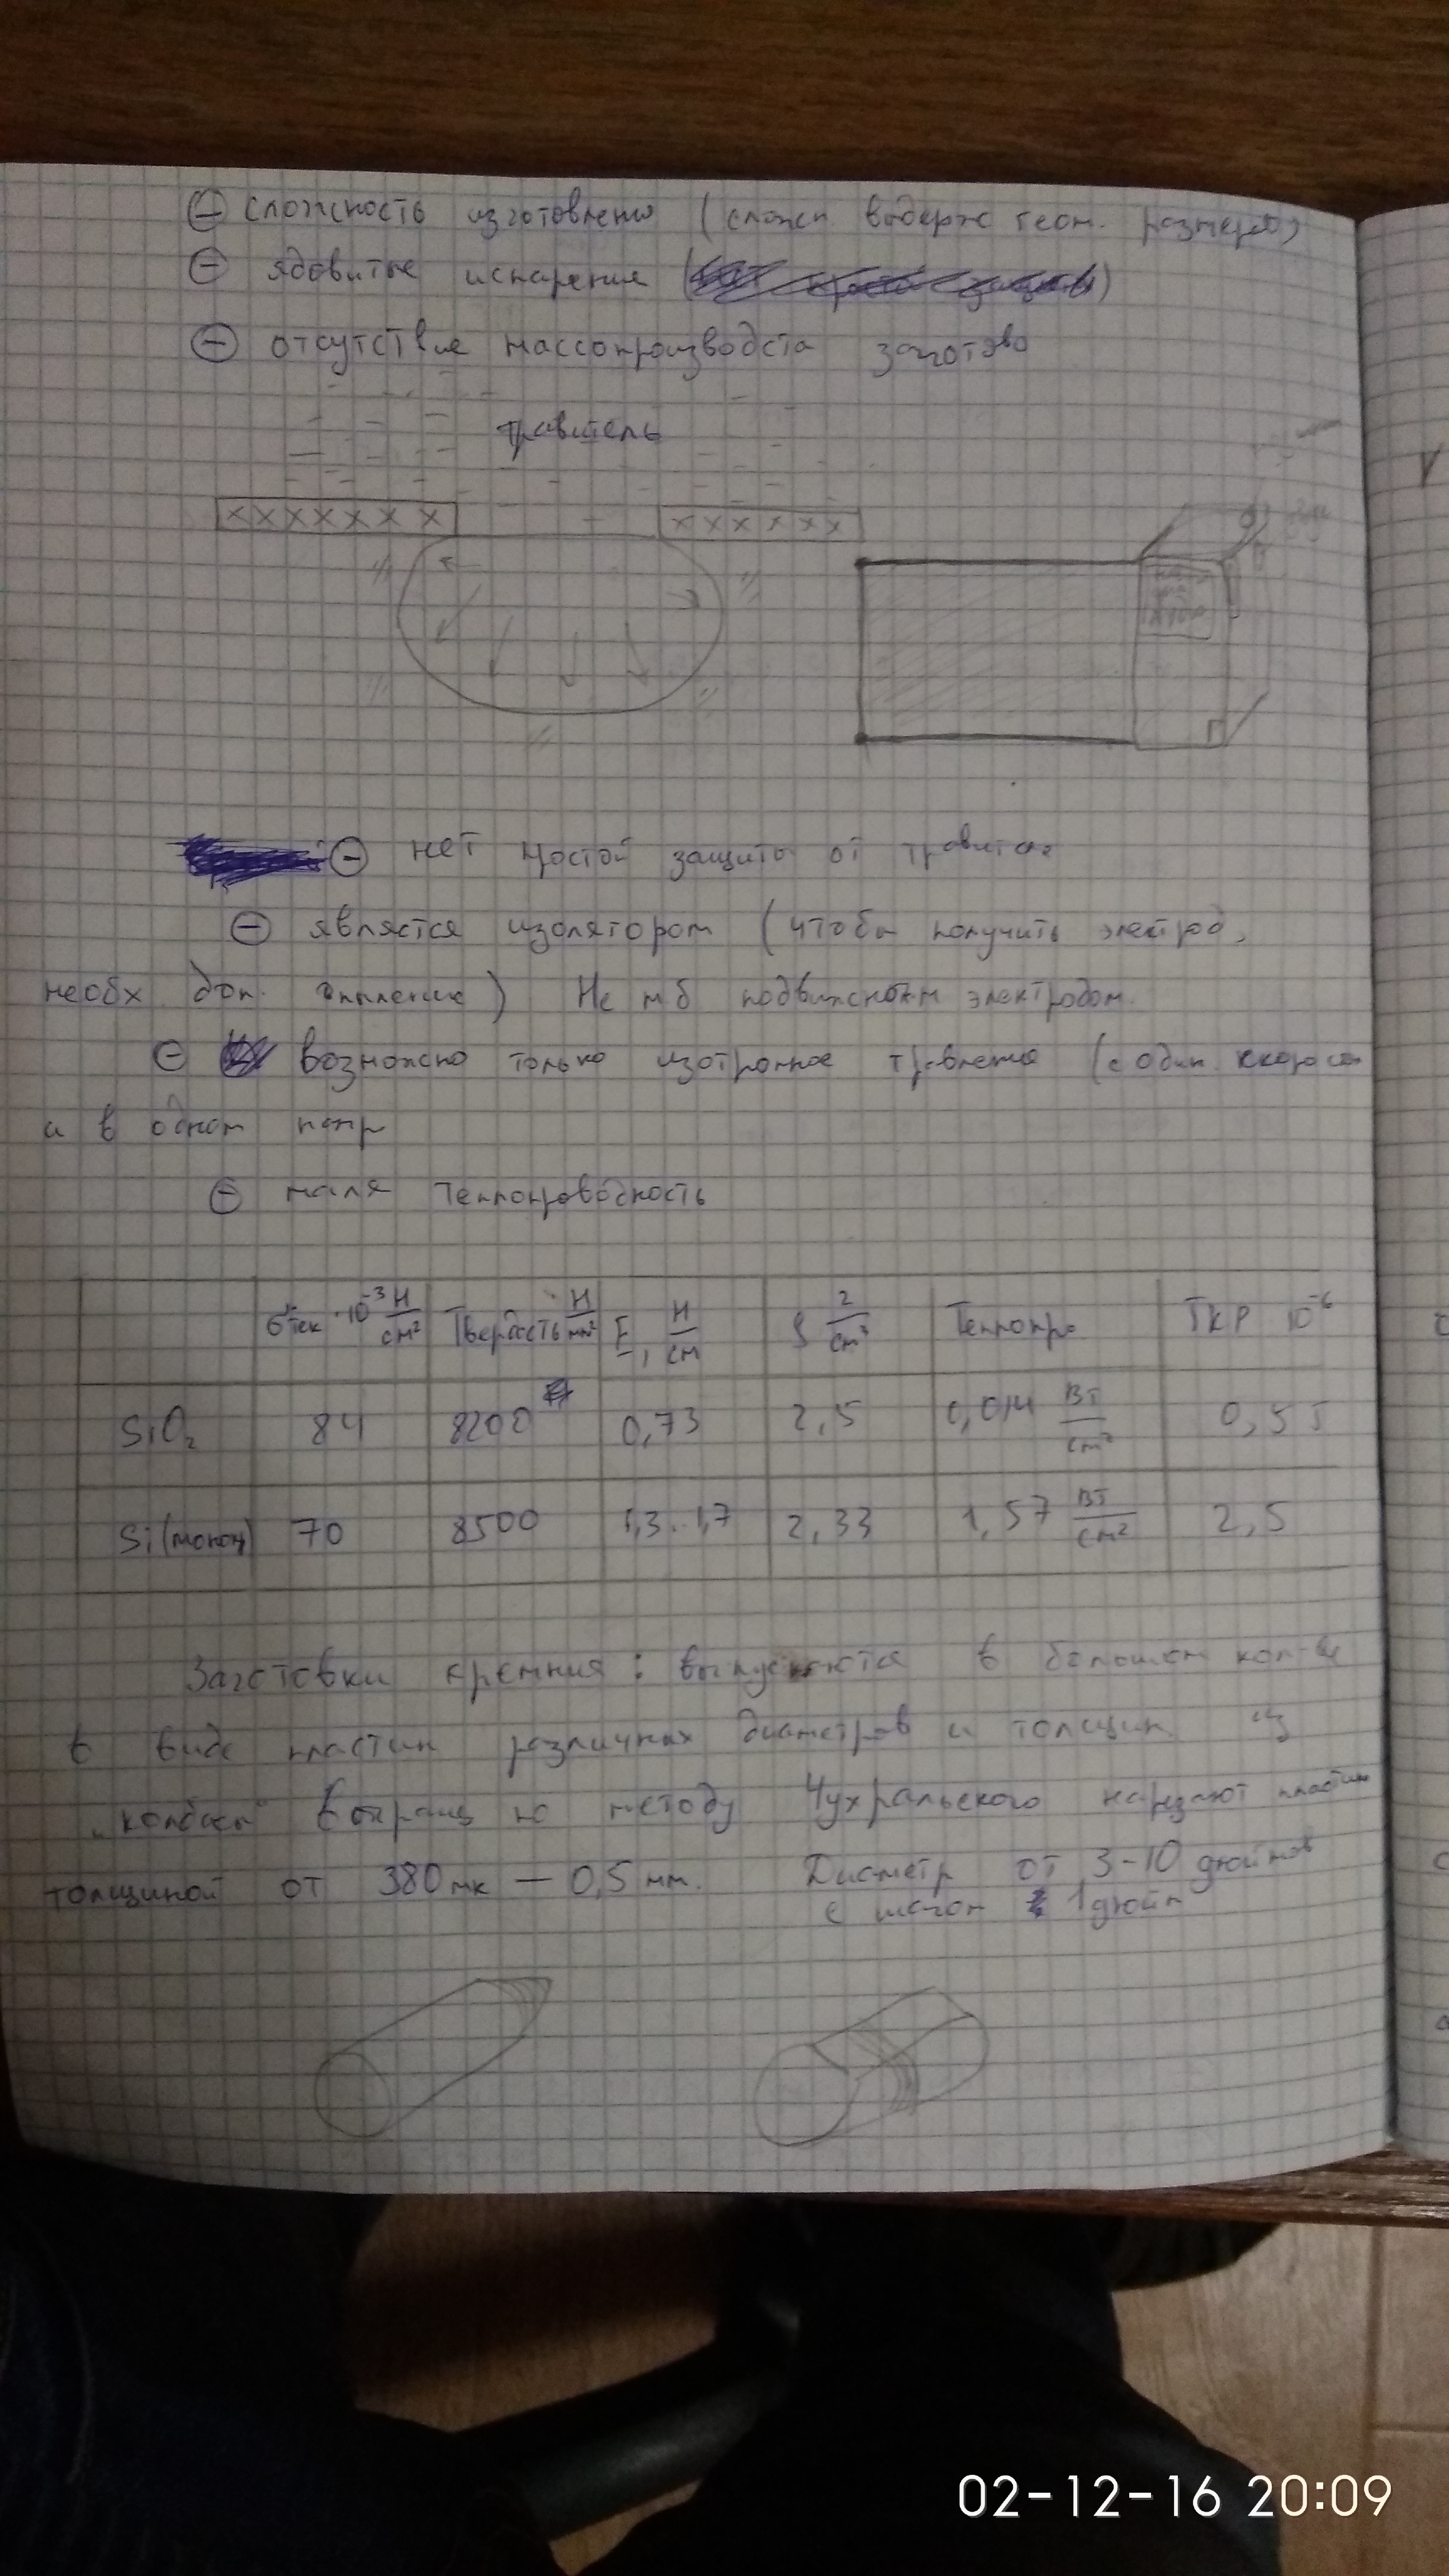 ⊖ сложность изготовления (сложн выдерж геом. размеров)
⊖ ядовитые испарения
⊖ отсутствие массопроизводста заготово
травитель
x x x x x x x x x x x x x
⊖ нет простой защиты от травителя
⊖ является изолятором (чтобы получить электрод,
необх доп. напыление) Не м б подвижным электродом.
⊖ возможно только изотропное травления (с один. скорость
и в одном напр
⊖ малая теплопроводность
σтек · 10⁻³ Н/см² Твердость Н/мм² E, Н/см ρ г/см³ Теплопро ТКР 10⁻⁶
SiO₂ 84 8200 0,73 2,5 0,014 Вт/см² 0,55
Si (монок) 70 8500 1,3..1,7 2,33 1,57 Вт/см² 2,5
Заготовки кремния: выпускаются в большом кол-ве
в виде пластин различных диаметров и толщин из
"колбасы" выращ по методу Чухральского нарезают пластины
толщиной от 380 мк — 0,5 мм. Диаметр от 3-10 дюймов
с шагом 1 дюйм
02-12-16 20:09